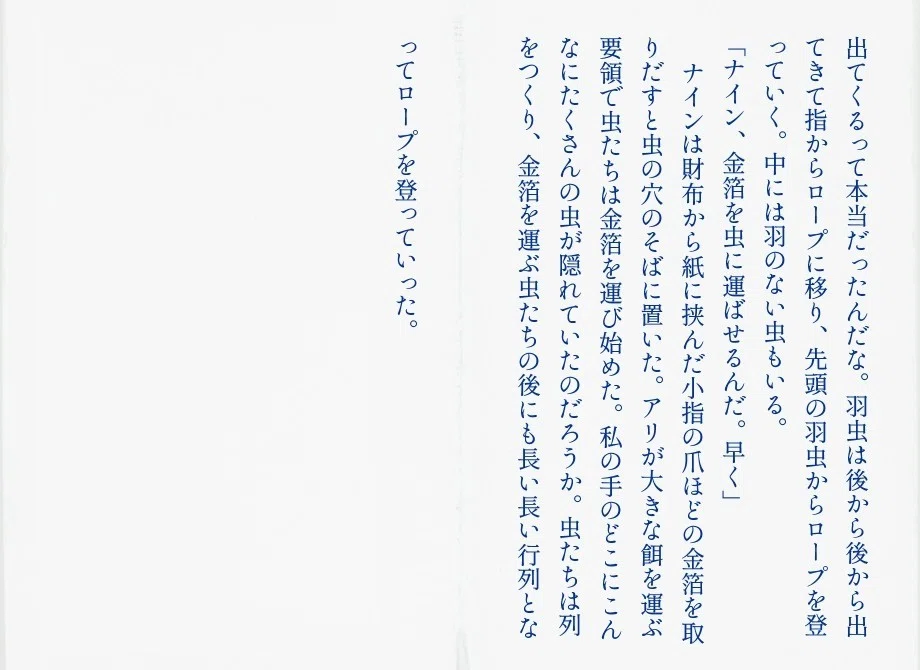 出てくるって本当だったんだな。羽虫は後から後から出
てきて指からロープに移り、先頭の羽虫からロープを登
っていく。中には羽のない虫もいる。
「ナイン、金箔を虫に運ばせるんだ。早く」
　ナインは財布から紙に挟んだ小指の爪ほどの金箔を取
りだすと虫の穴のそばに置いた。アリが大きな餌を運ぶ
要領で虫たちは金箔を運び始めた。私の手のどこにこん
なにたくさんの虫が隠れていたのだろうか。虫たちは列
をつくり、金箔を運ぶ虫たちの後にも長い長い行列とな
ってロープを登っていった。